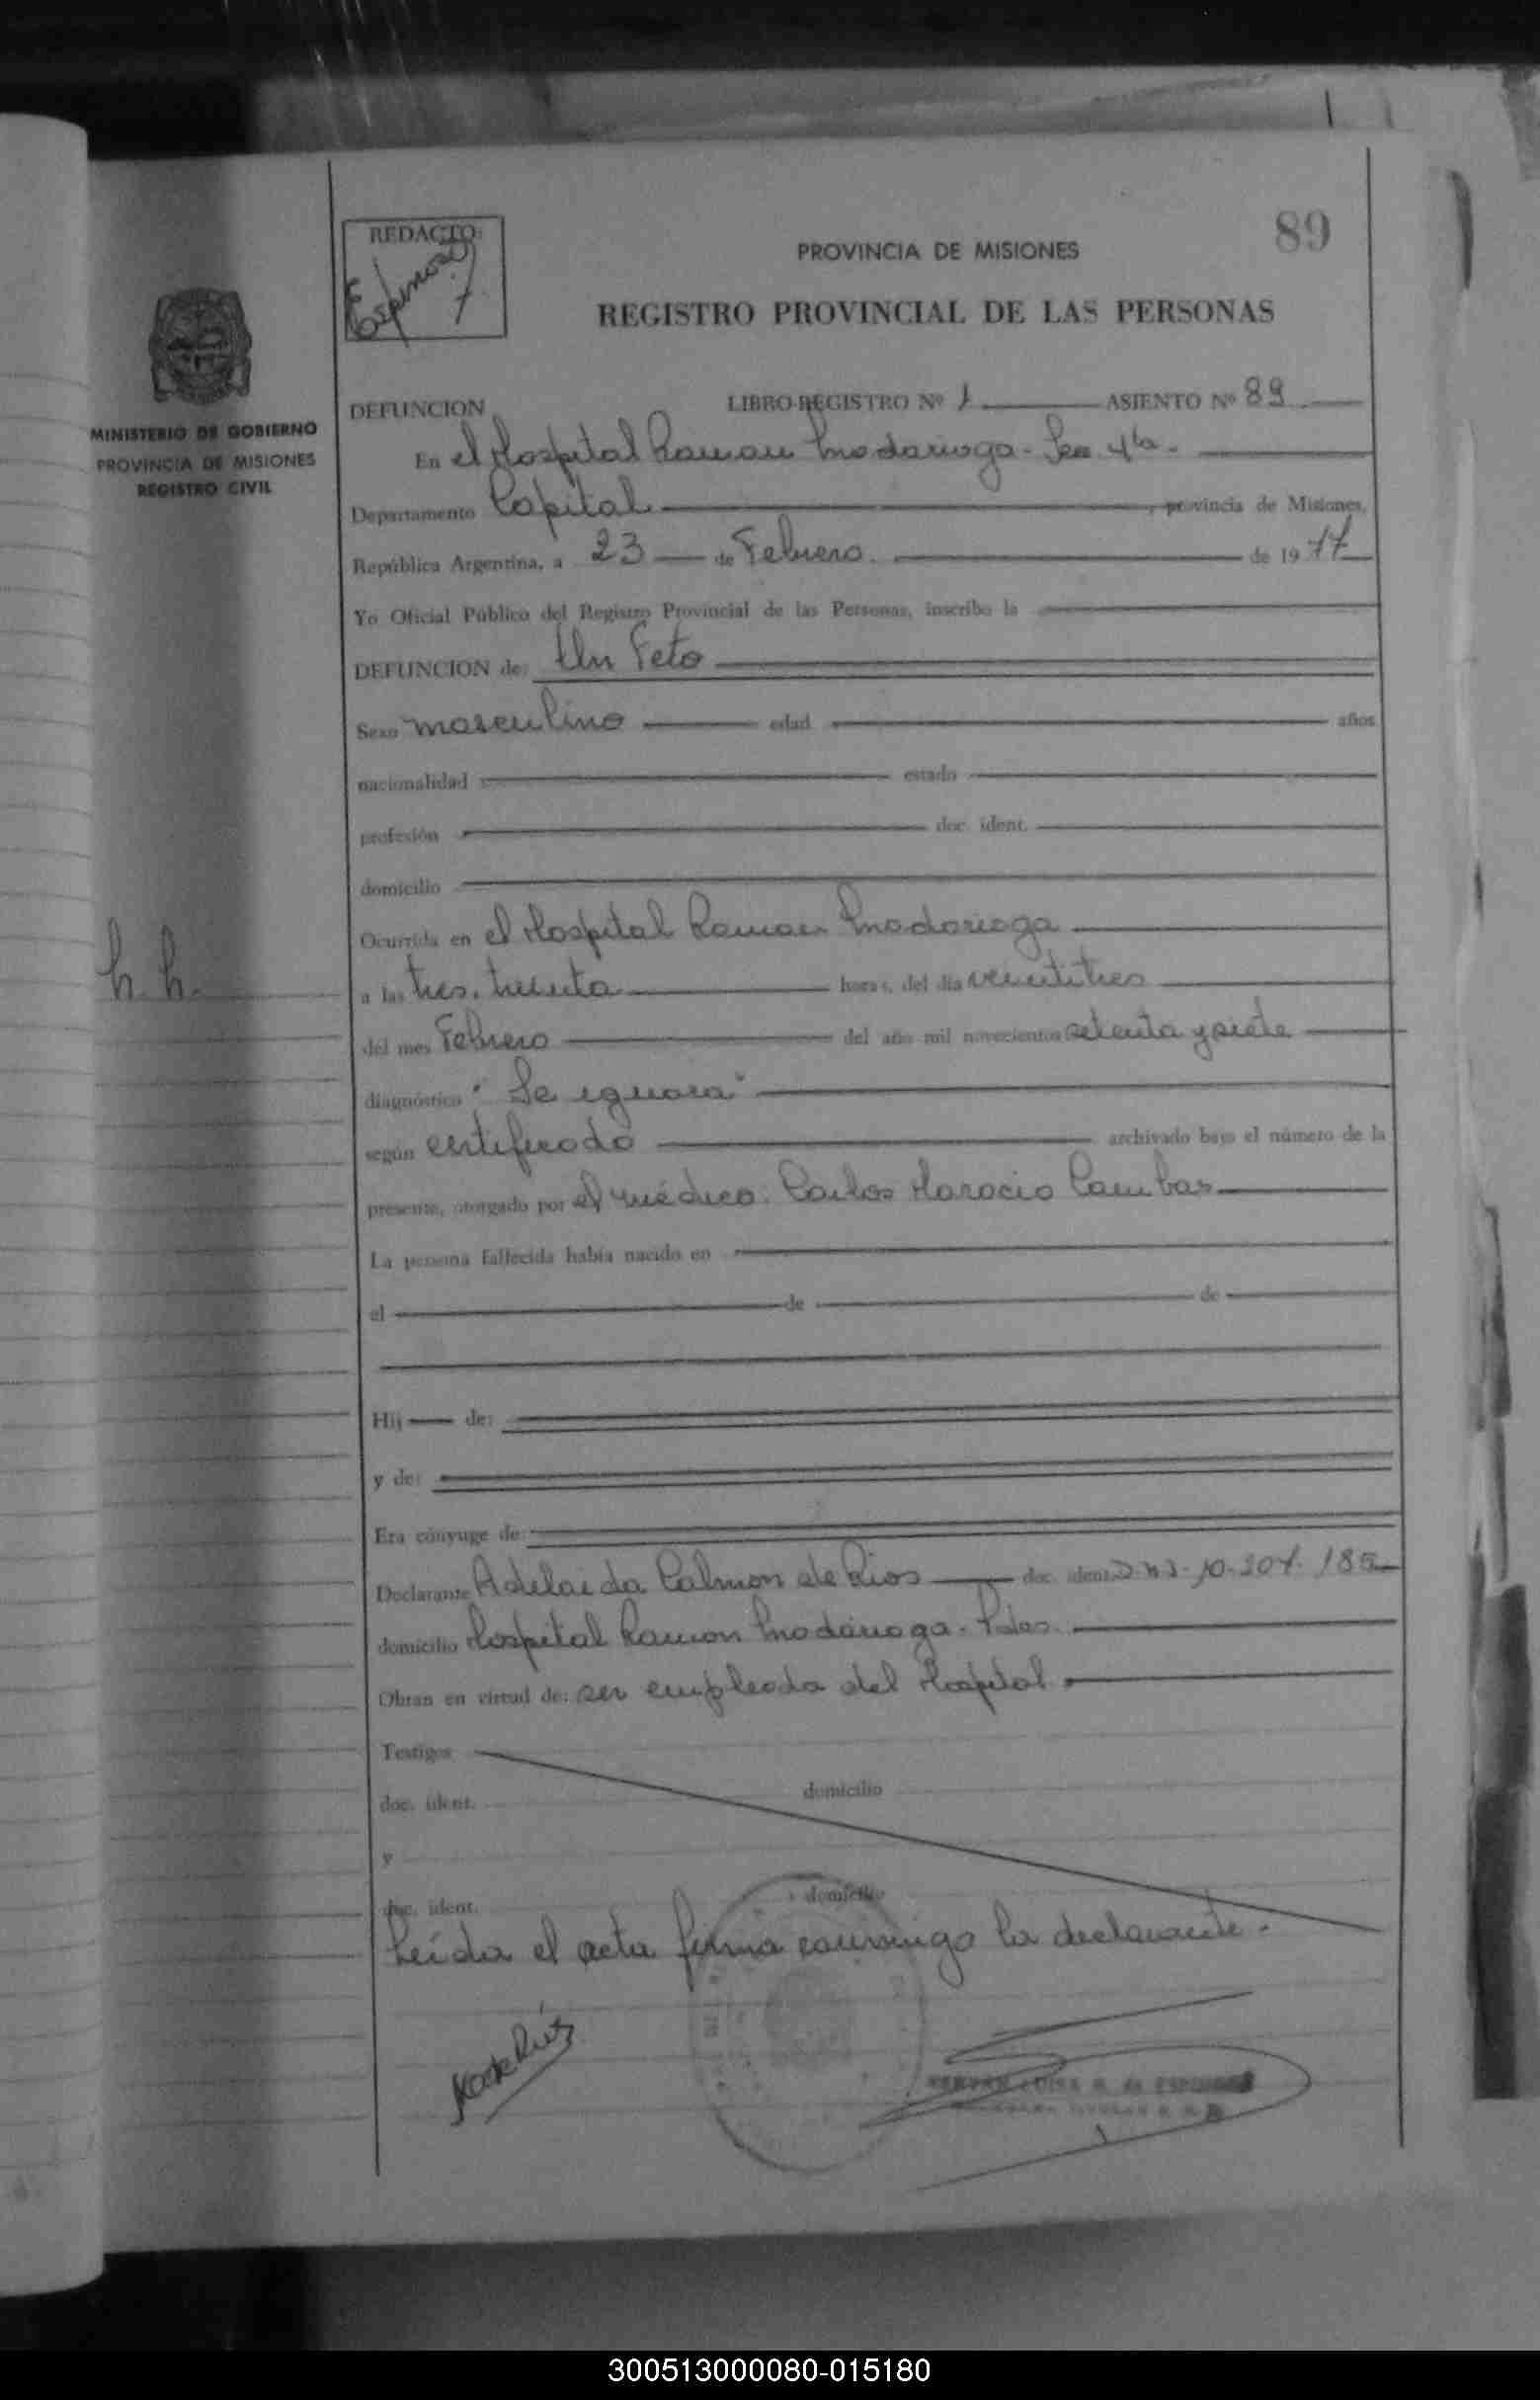 89
REDACTO:
Espinosa
PROVINCIA DE MISIONES
REGISTRO PROVINCIAL DE LAS PERSONAS
MINISTERIO DE GOBIERNO
PROVINCIA DE MISIONES
REGISTRO CIVIL
DEFUNCION LIBRO-REGISTRO Nº 1 ASIENTO Nº 89
En el Hospital Ramon Madariaga - Sec. 4ta.
Departamento Capital , provincia de Misiones,
República Argentina, a 23 de Febrero. de 1977
Yo Oficial Público del Registro Provincial de las Personas, inscribo la
DEFUNCION de: Un Feto
Sexo masculino edad años
nacionalidad estado
profesión doc. ident.
domicilio
Ocurrida en el Hospital Ramon Madariaga
h. h.
a las tres. treinta horas, del día veintitres
del mes Febrero del año mil novecientos setenta y siete
diagnóstico "Se ignora"
según certificado archivado bajo el número de la
presente, otorgado por el médico: Carlos Horacio Cambas
La persona fallecida había nacido en
el de de
Hij de:
y de:
Era cónyuge de:
Declarante Adelaida Calmon de Rios doc. ident. D.N.I. 10.207.185
domicilio Hospital Ramon Madariaga - Pdas.
Obran en virtud de: ser empleada del Hospital
Testigos
doc. ident. domicilio
y
doc. ident. domicilio
Leída el acta firma conmigo la declarante.
300513000080-015180